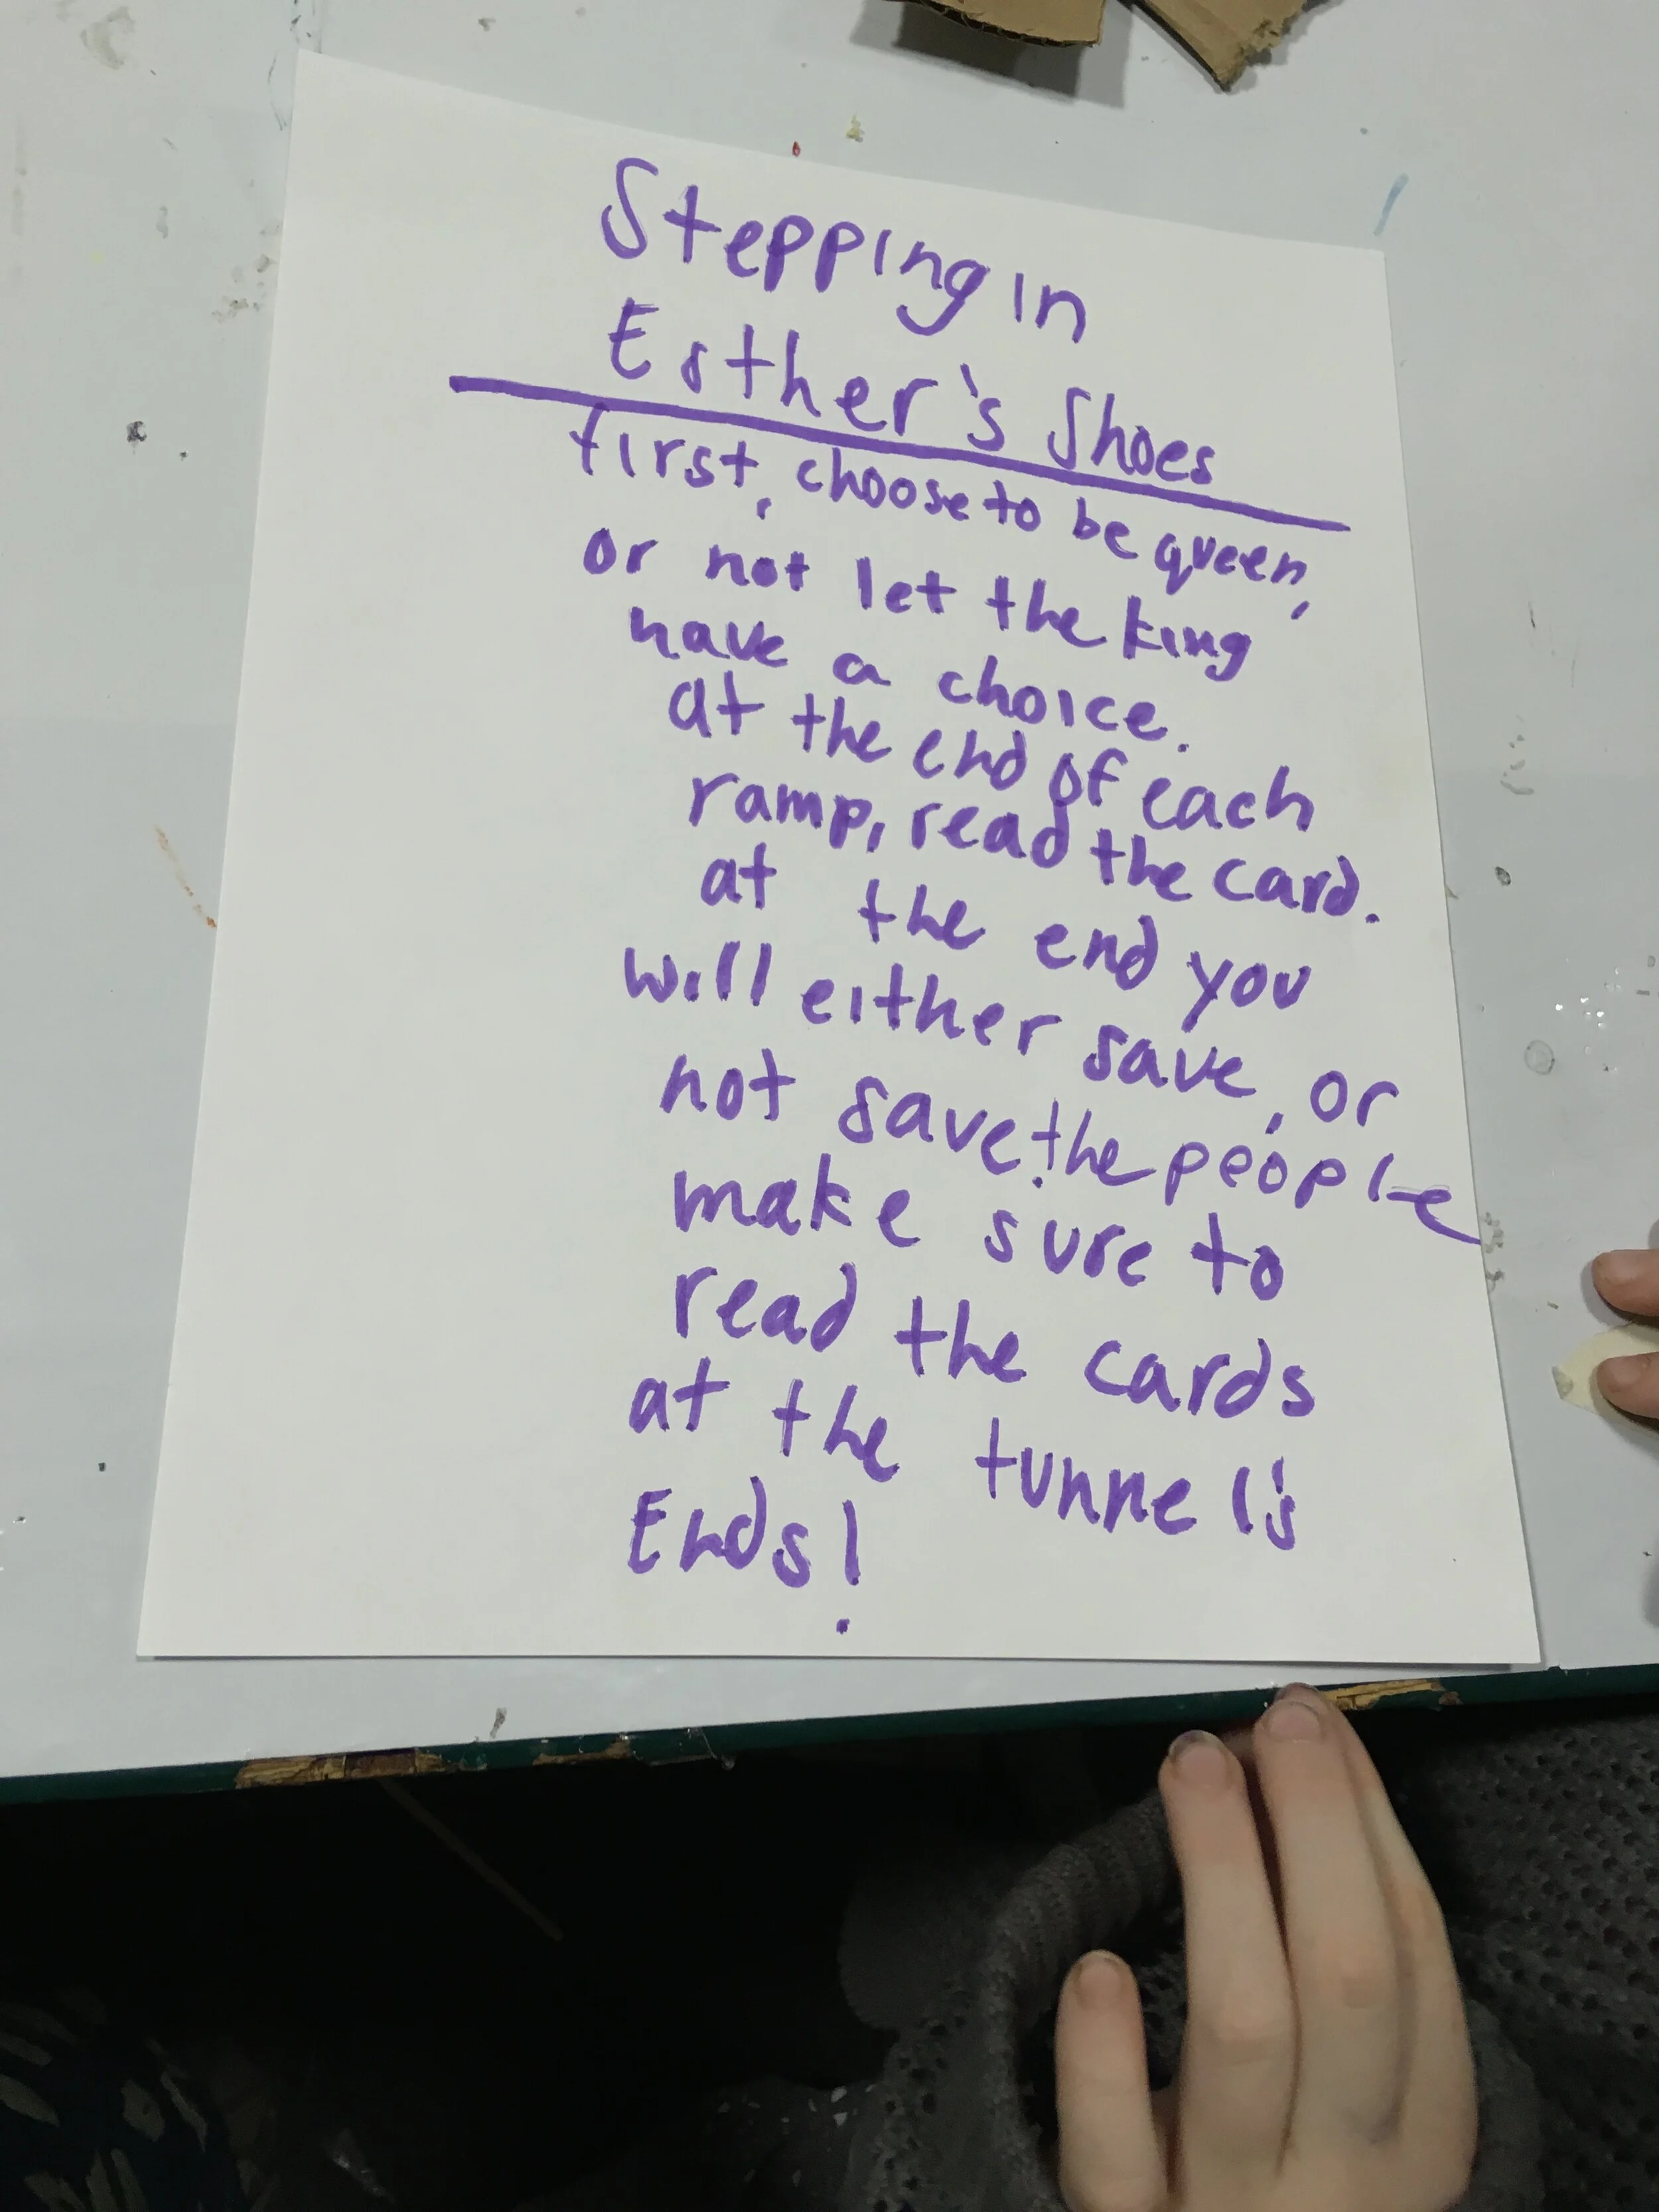 Stepping in
Esther's Shoes
first, choose to be queen,
or not let the king
have a choice.
at the end of each
ramp, read the card.
at the end you
will either save, or
not save. the people
make sure to
read the cards
at the tunnel's
Ends!